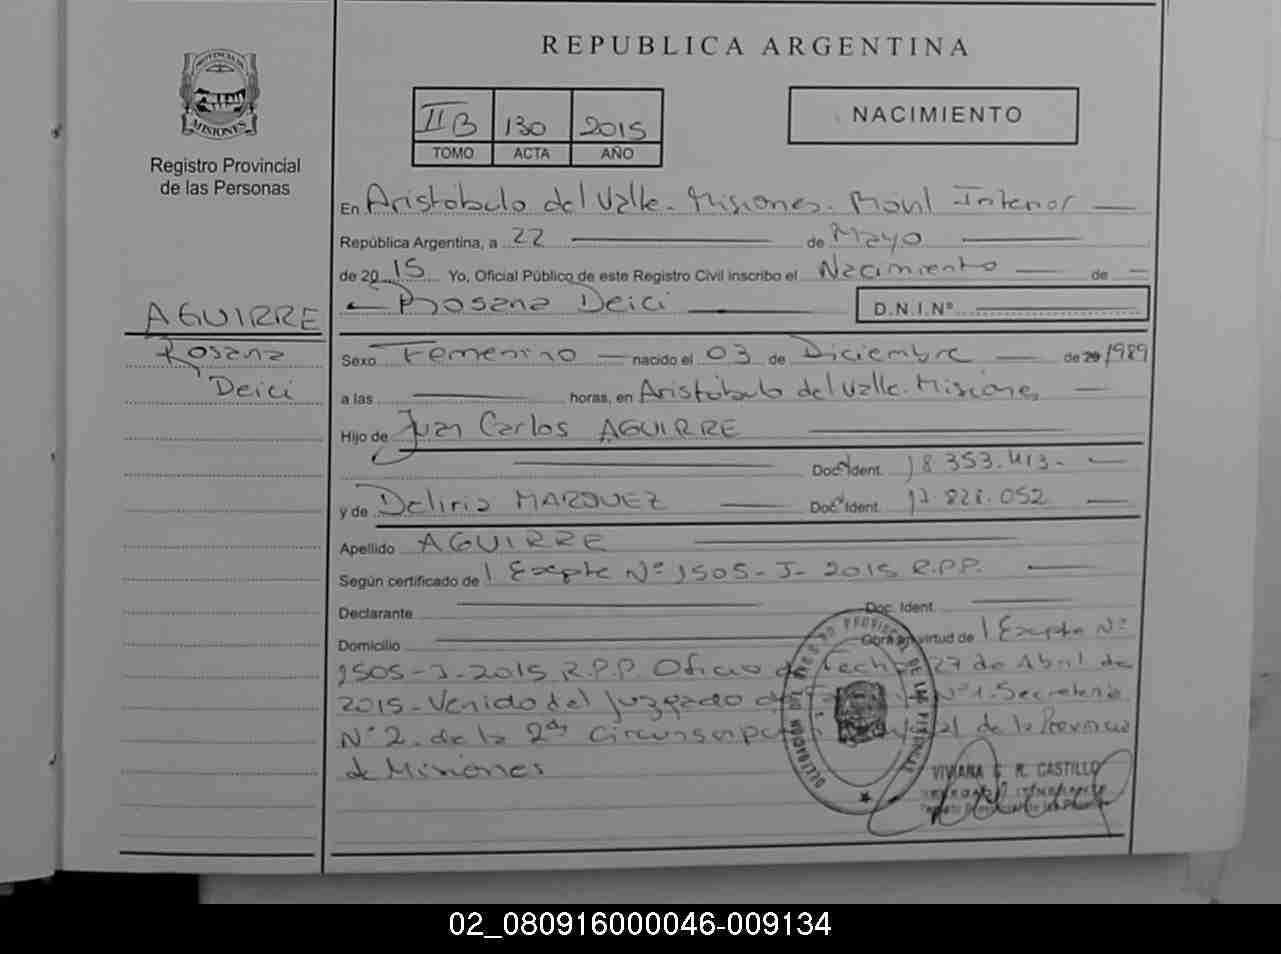 REPUBLICA ARGENTINA
PROVINCIA DE
MISIONES
Registro Provincial
de las Personas
II B 130 2015
TOMO ACTA AÑO
NACIMIENTO
En Aristóbulo del Valle - Misiones - Móvil Interior
República Argentina, a 22 de Mayo
de 2015 Yo, Oficial Público de este Registro Civil inscribo el Nacimiento de
Rosana Deici
D.N.I.Nº
AGUIRRE
Rosana
Deici
Sexo Femenino nacido el 03 de Diciembre de 20 1989
a las horas, en Aristóbulo del Valle - Misiones
Hijo de Juan Carlos AGUIRRE
Doc. Ident. 18 353.413.-
y de Deliria MARQUEZ Doc. Ident. 17.828.052
Apellido AGUIRRE
Según certificado de Expte Nº 1505-J-2015 R.P.P.
Declarante Doc. Ident.
Domicilio Obra en virtud de Expte Nº
1505-J-2015 R.P.P. Oficio de fecha 27 de Abril de
2015 - Venido del Juzgado de Nº 1 - Secretaría
Nº 2 - de la 2da Circunscripción de la Provincia
de Misiones
VIVIANA R. CASTILLO
02_080916000046-009134